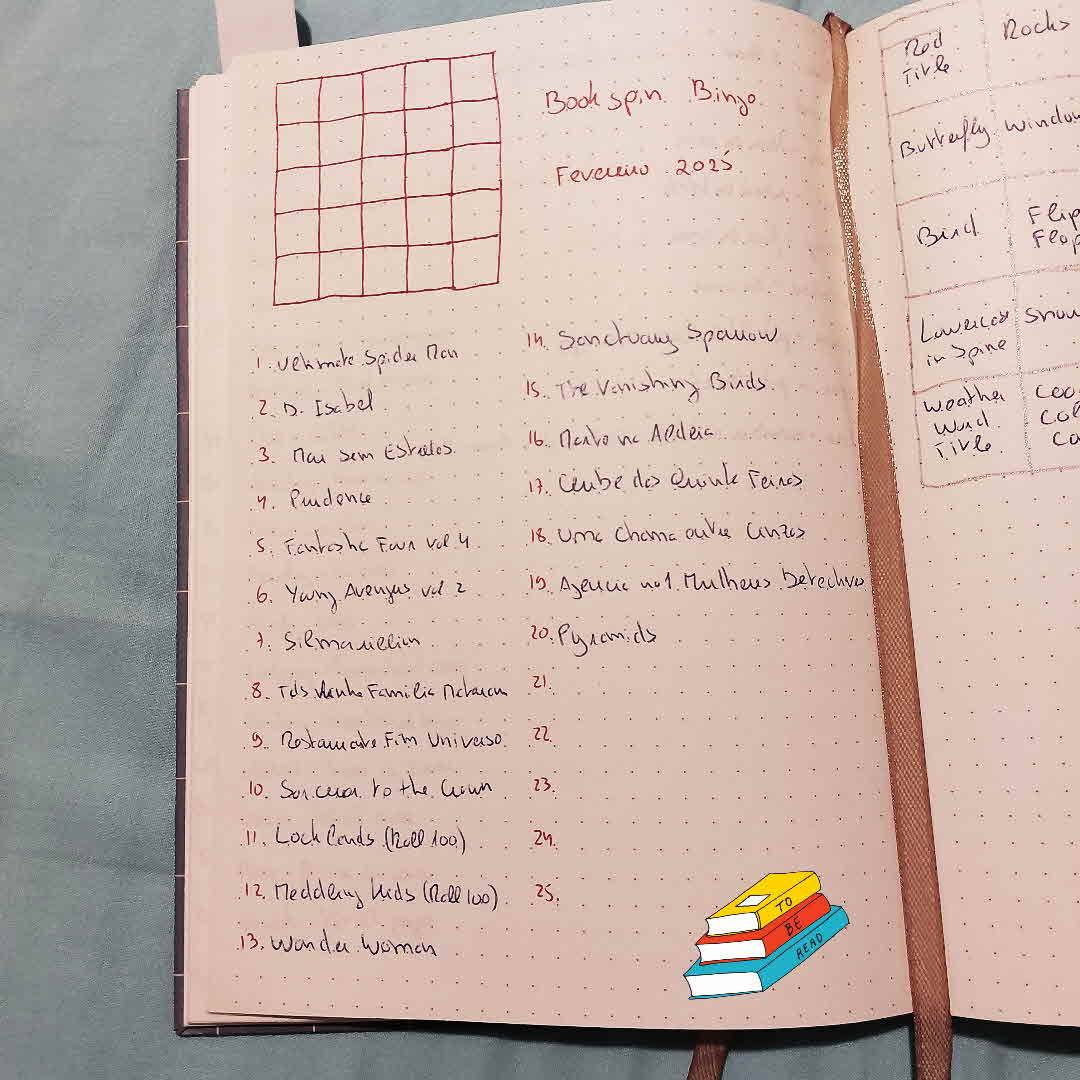 Book spin Bingo
Fevereiro 2025
1. Ultimate Spider Man
2. D. Isabel
3. Mar sem Estrelas
4. Prudence
5. Fantastic Four vol 4
6. Young Avengers vol 2
7. Silmarillion
8. Familia
9. Restaurante Fim Universo
10. Sorcerer to the Crown
11. Lock Lords (Roll 100)
12. Meddling Kids (Roll 100)
13. Wonder Woman
14. Sanctuary Sparrow
15. The Vanishing Birds
16. Morte na Aldeia
17. Clube das Quinta Feiras
18. Uma Chama entre Cinzas
19. Agencia no1 Mulheres Detectives
20. Pyramids
21.
22.
23.
24.
25.
TO
BE
READ
Red Rocks
Title
Butterfly Window
Bird Flip
Flop
Lowercase Snow
in Spine
Weather
Word
Title